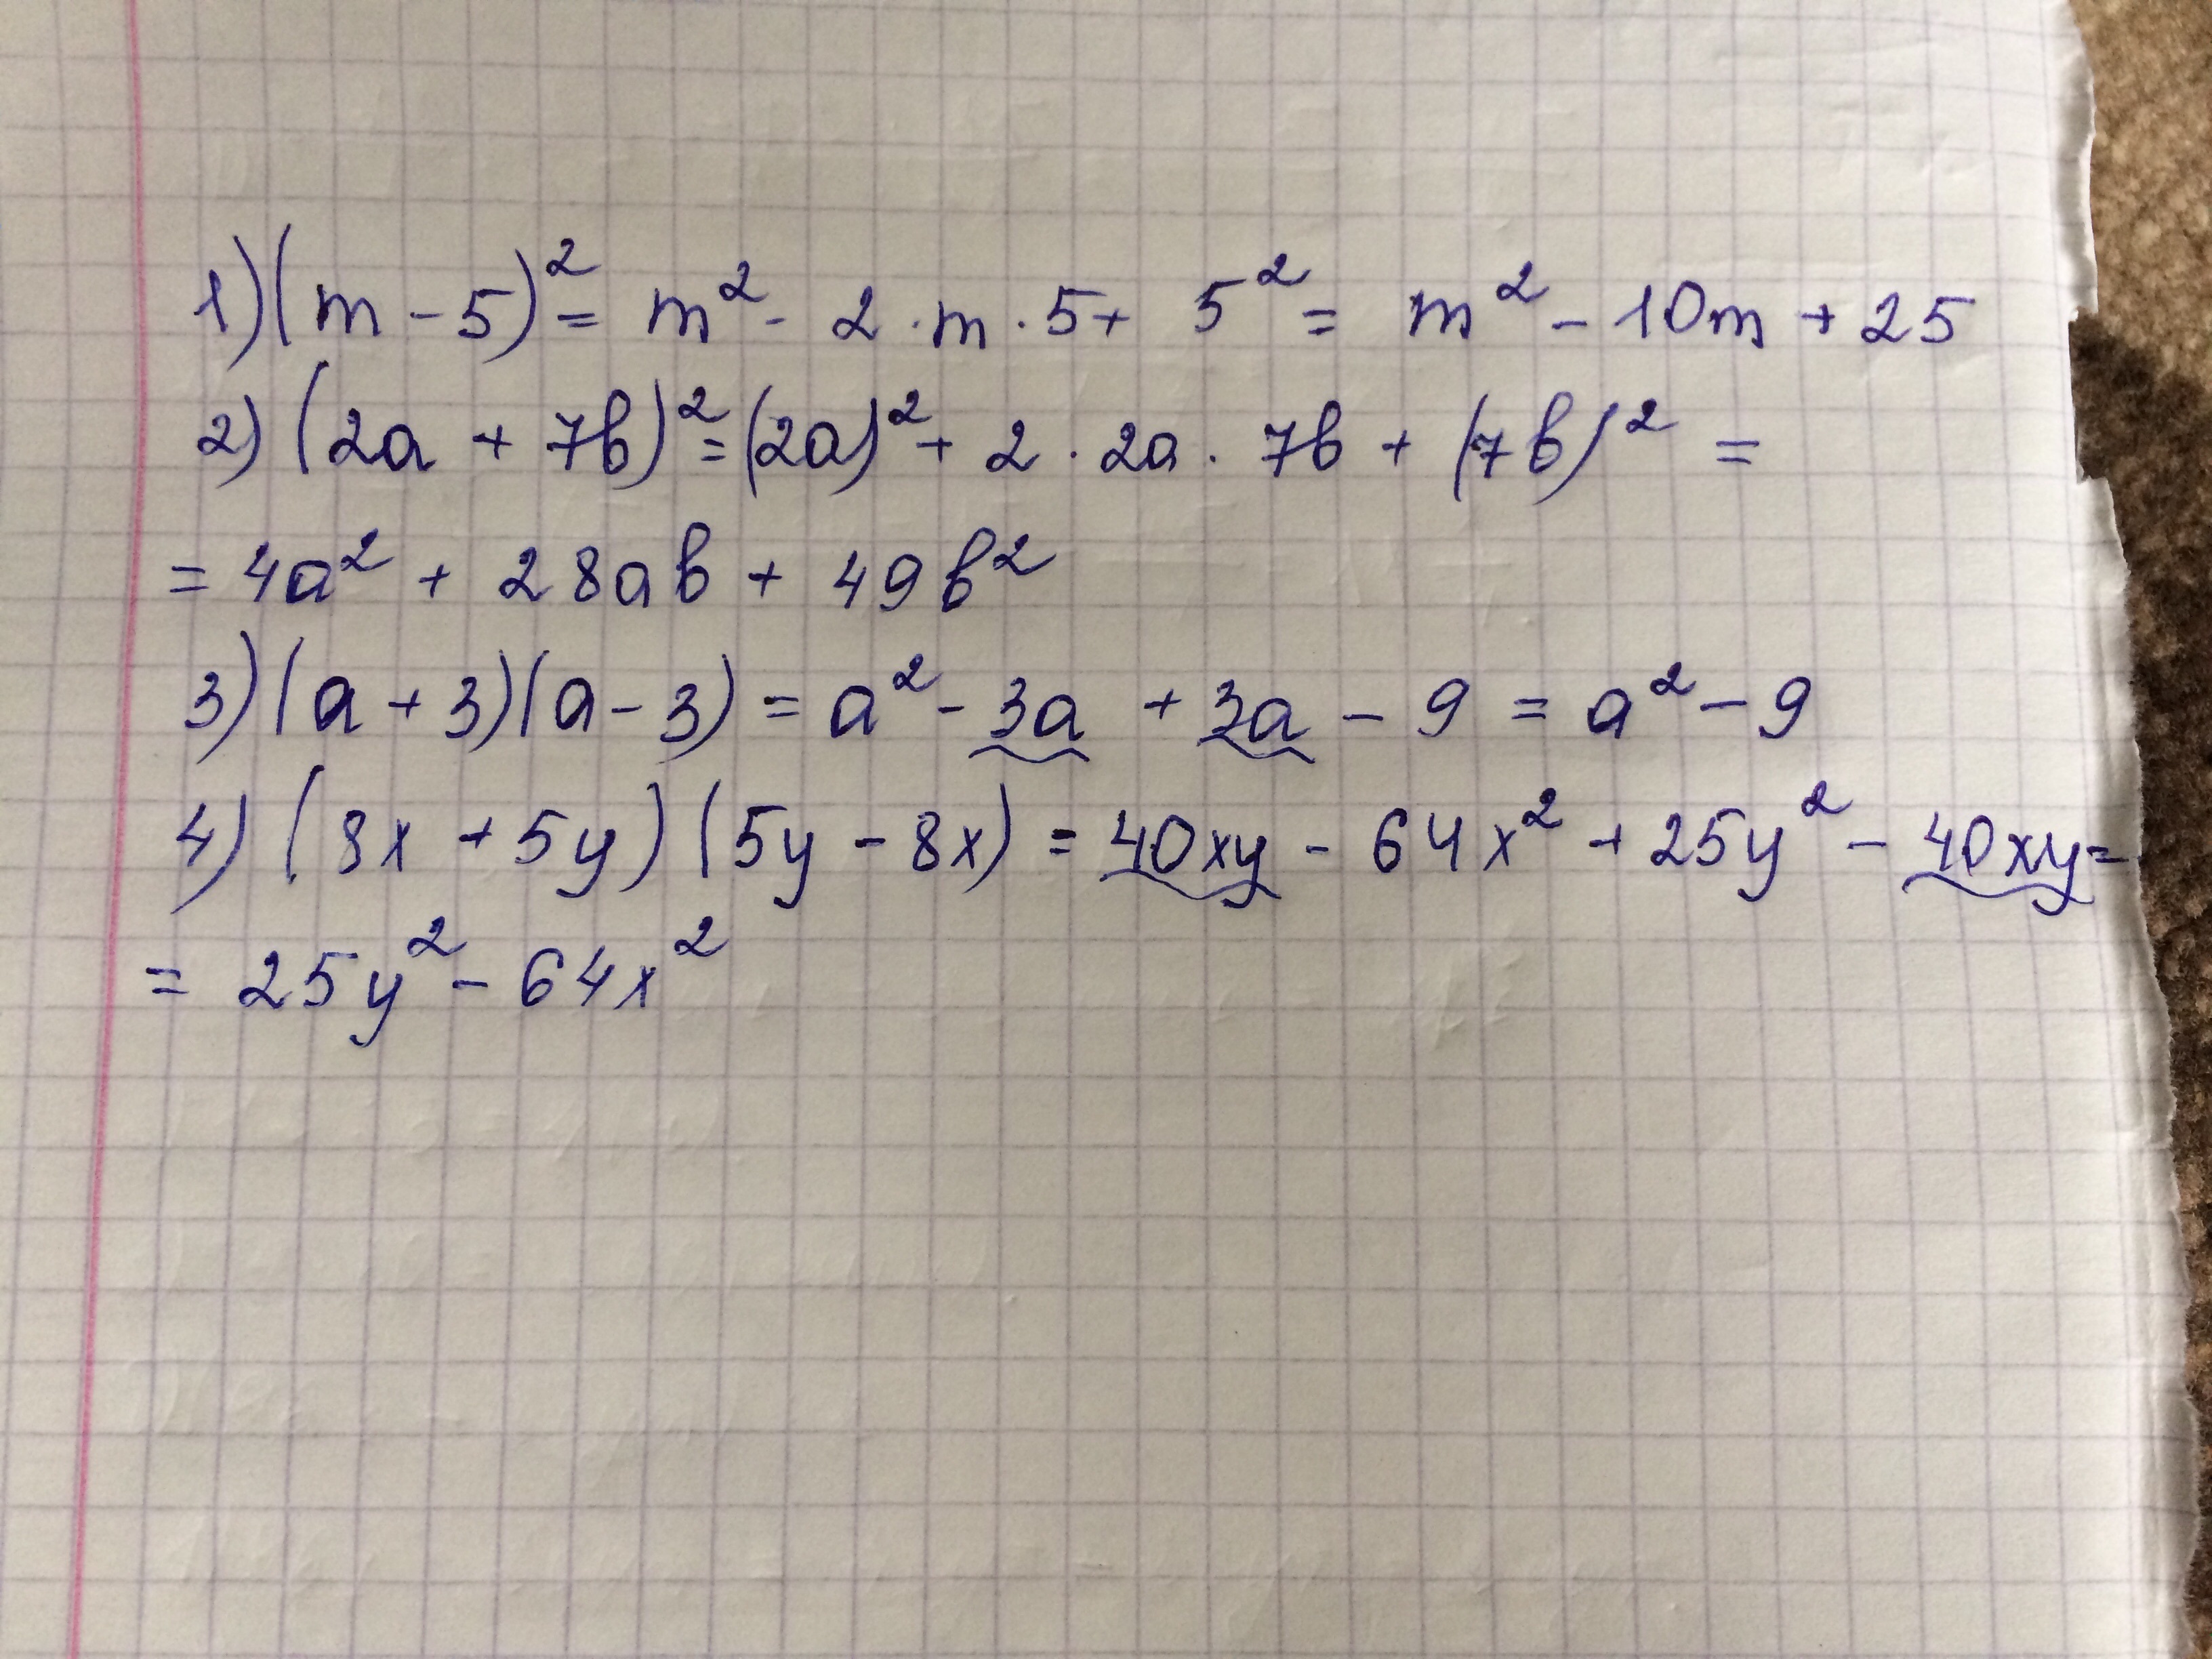 1) (m - 5)² = m² - 2 · m · 5 + 5² = m² - 10m + 25
2) (2a + 7b)² = (2a)² + 2 · 2a · 7b + (7b)² =
= 4a² + 28ab + 49b²
3) (a + 3)(a - 3) = a² - 3a + 3a - 9 = a² - 9
4) (8x + 5y)(5y - 8x) = 40xy - 64x² + 25y² - 40xy =
= 25y² - 64x²